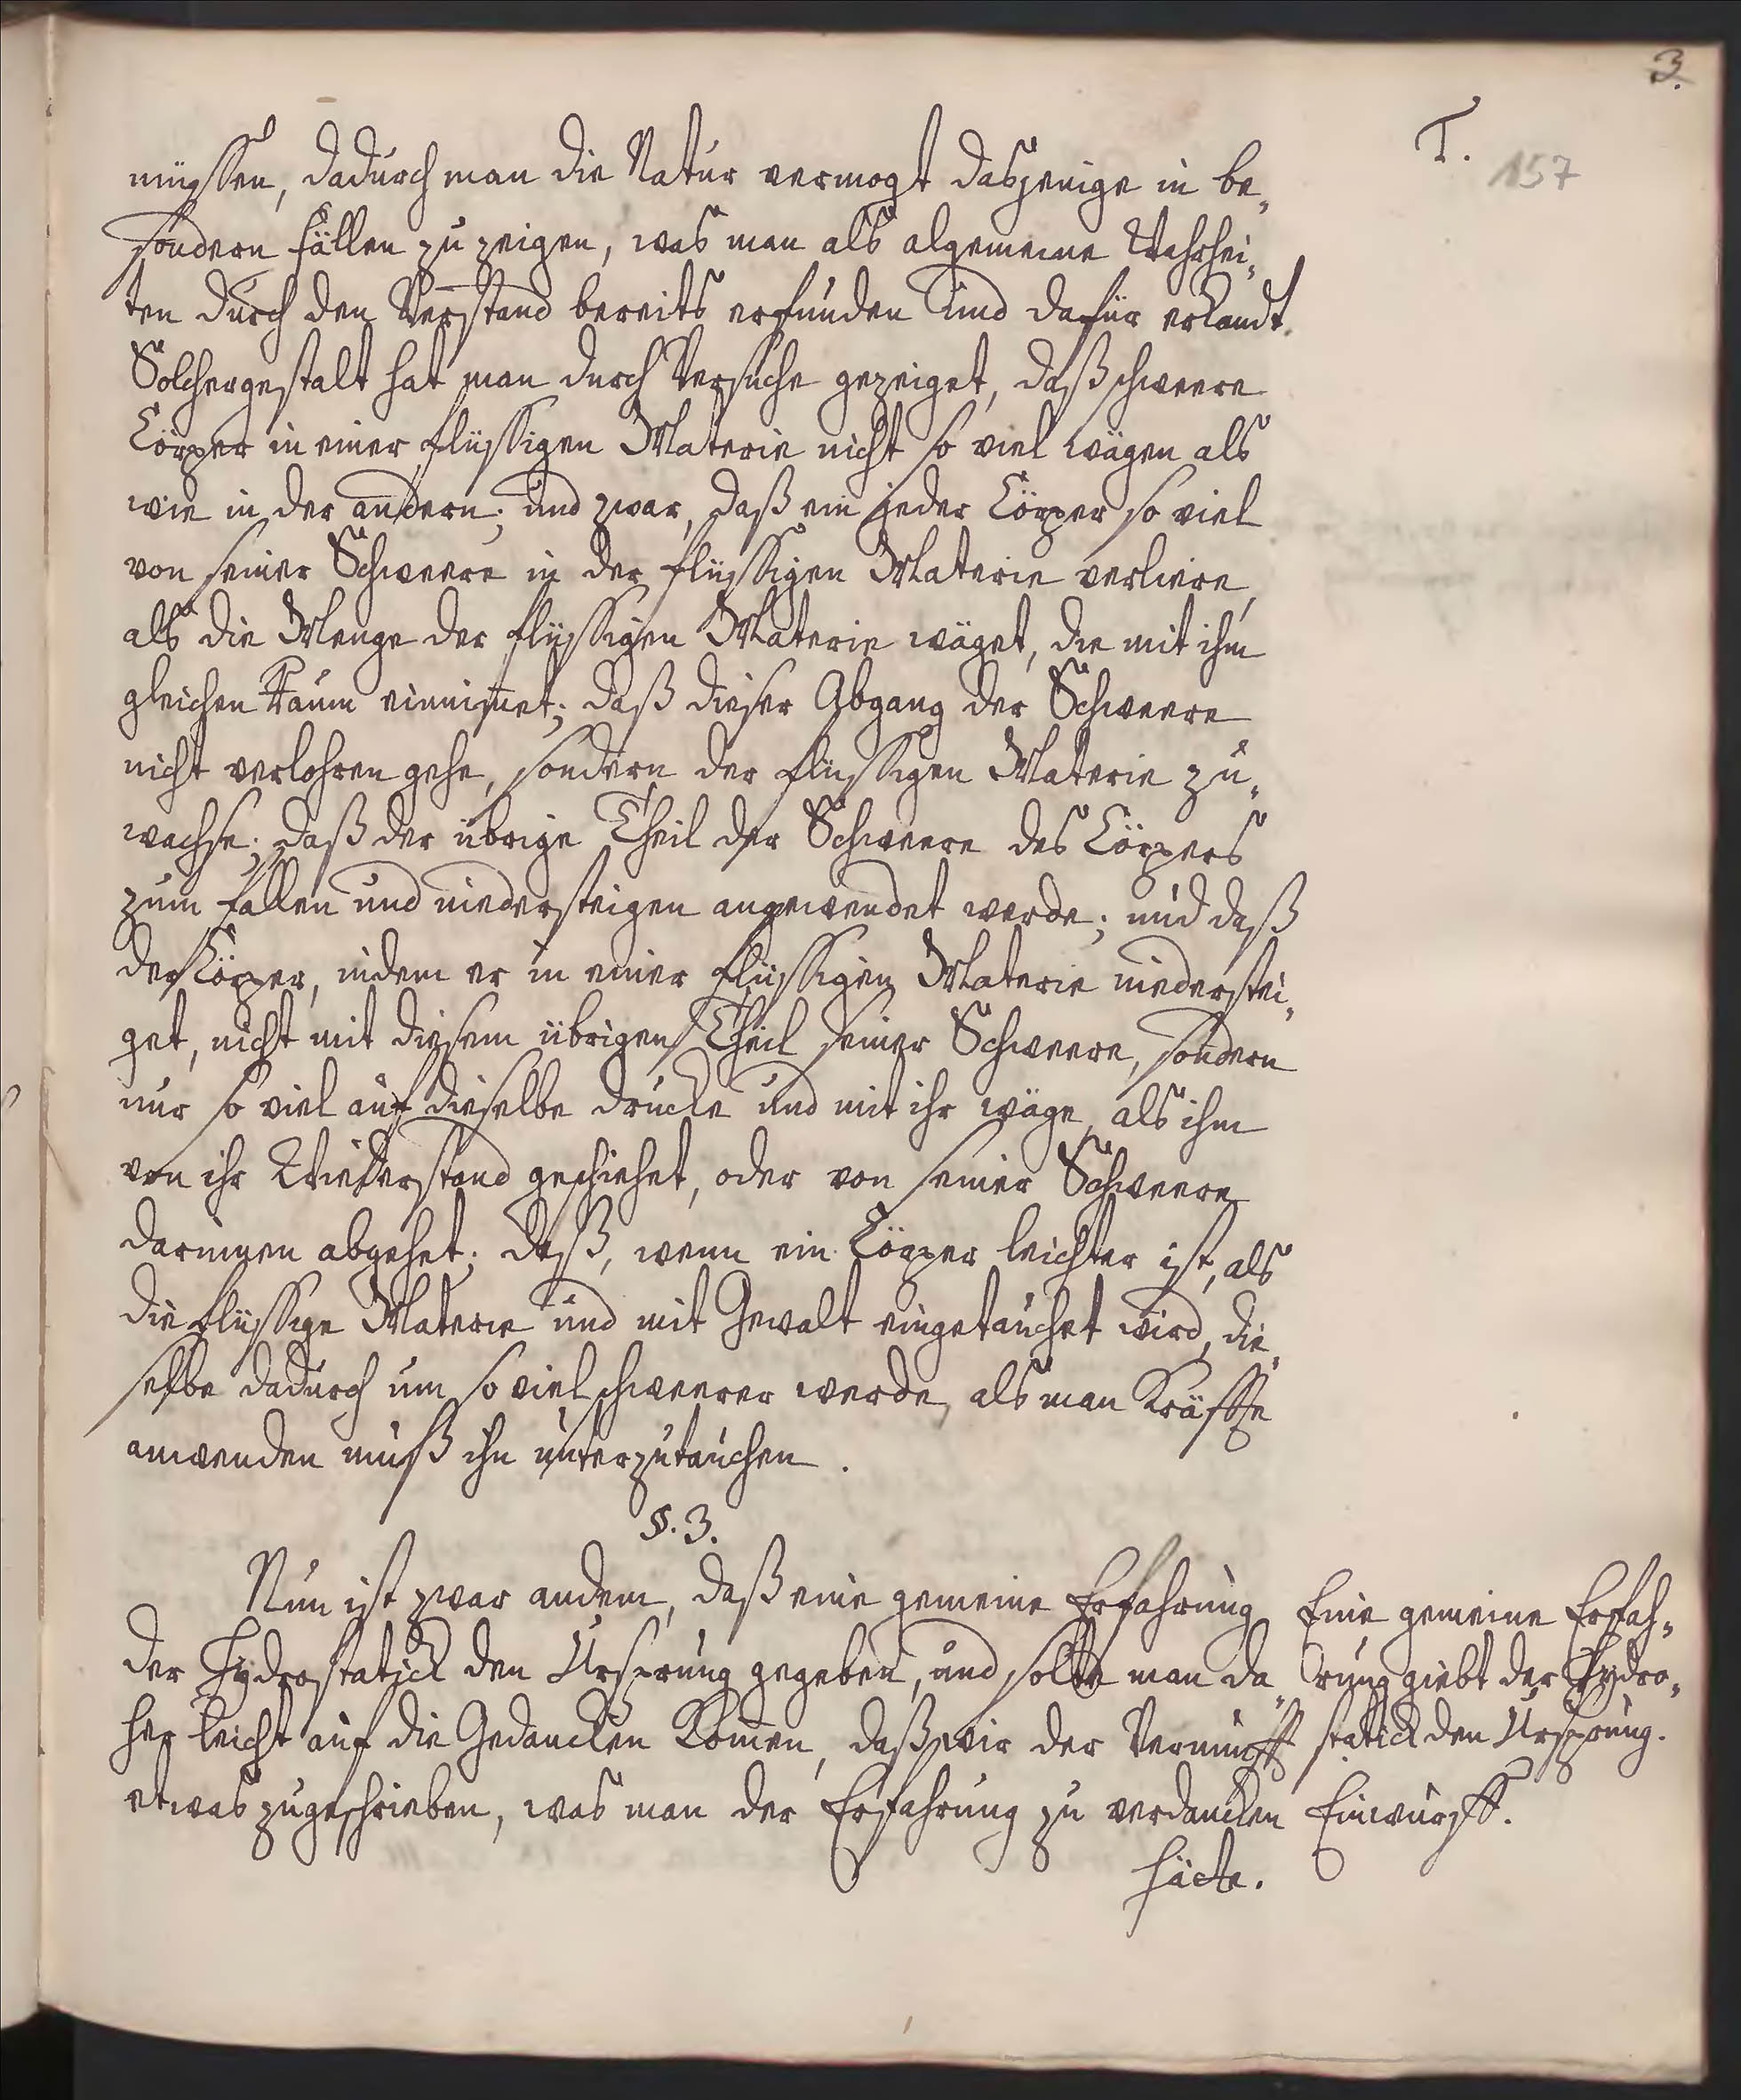 3.
T.
157
müssen, dadurch man die Natur vermogt dasjenige in be„
sondern Fällen zu zeigen, was man als algemeine Wahrhei„
ten durch den Verstand bereits erfunden und dafür erkandt.
Solchergestalt hat man durch Versuche gezeiget, daß schweere
Cörper in einer flüssigen Materie nicht so viel wägen als
wie in der andern; und zwar, daß ein jeder Cörper so viel
von seiner Schweere in der flüssigen Materie verliere,
als die Menge der flüssigen Materie wäget, die mit ihm
gleichen Raum einnim̄et; daß dieser Abgang der Schweere
nicht verlohren gehe, sondern der flüssigen Materie zu„
wachse; daß der übrige Theil der Schweere des Cörpers
zum fallen und niedersteigen angewendet werde; und daß
der Cörper, indem er in einer flüssigen Materie niederstei„
get, nicht mit diesem übrigen Theil seiner Schweere, sondern
nur so viel auf dieselbe drucke und mit ihr wäge, als ihm
von ihr Wiederstand geschiehet, oder von seiner Schweere
darinnen abgehet; daß, wenn ein Cörper leichter ist, als
die flüssige Materie und mit Gewalt eingetauchet wird, die„
selbe dadurch um so viel schweerer werde, als man Kräffte
anwenden muß ihn unterzutauchen.
§. 3.
Nun ist zwar andem, daß eine gemeine Erfahrung
der Hydrostatick den Ursprung gegeben, und solte man da„
her leicht auf die Gedancken kom̄en, daß wir der Vernunfft
etwas zugeschrieben, was man der Erfahrung zu verdancken
hätte.
Eine gemeine Erfah„
rung giebt der Hydro„
statick den Ursprung.
Einwurff.